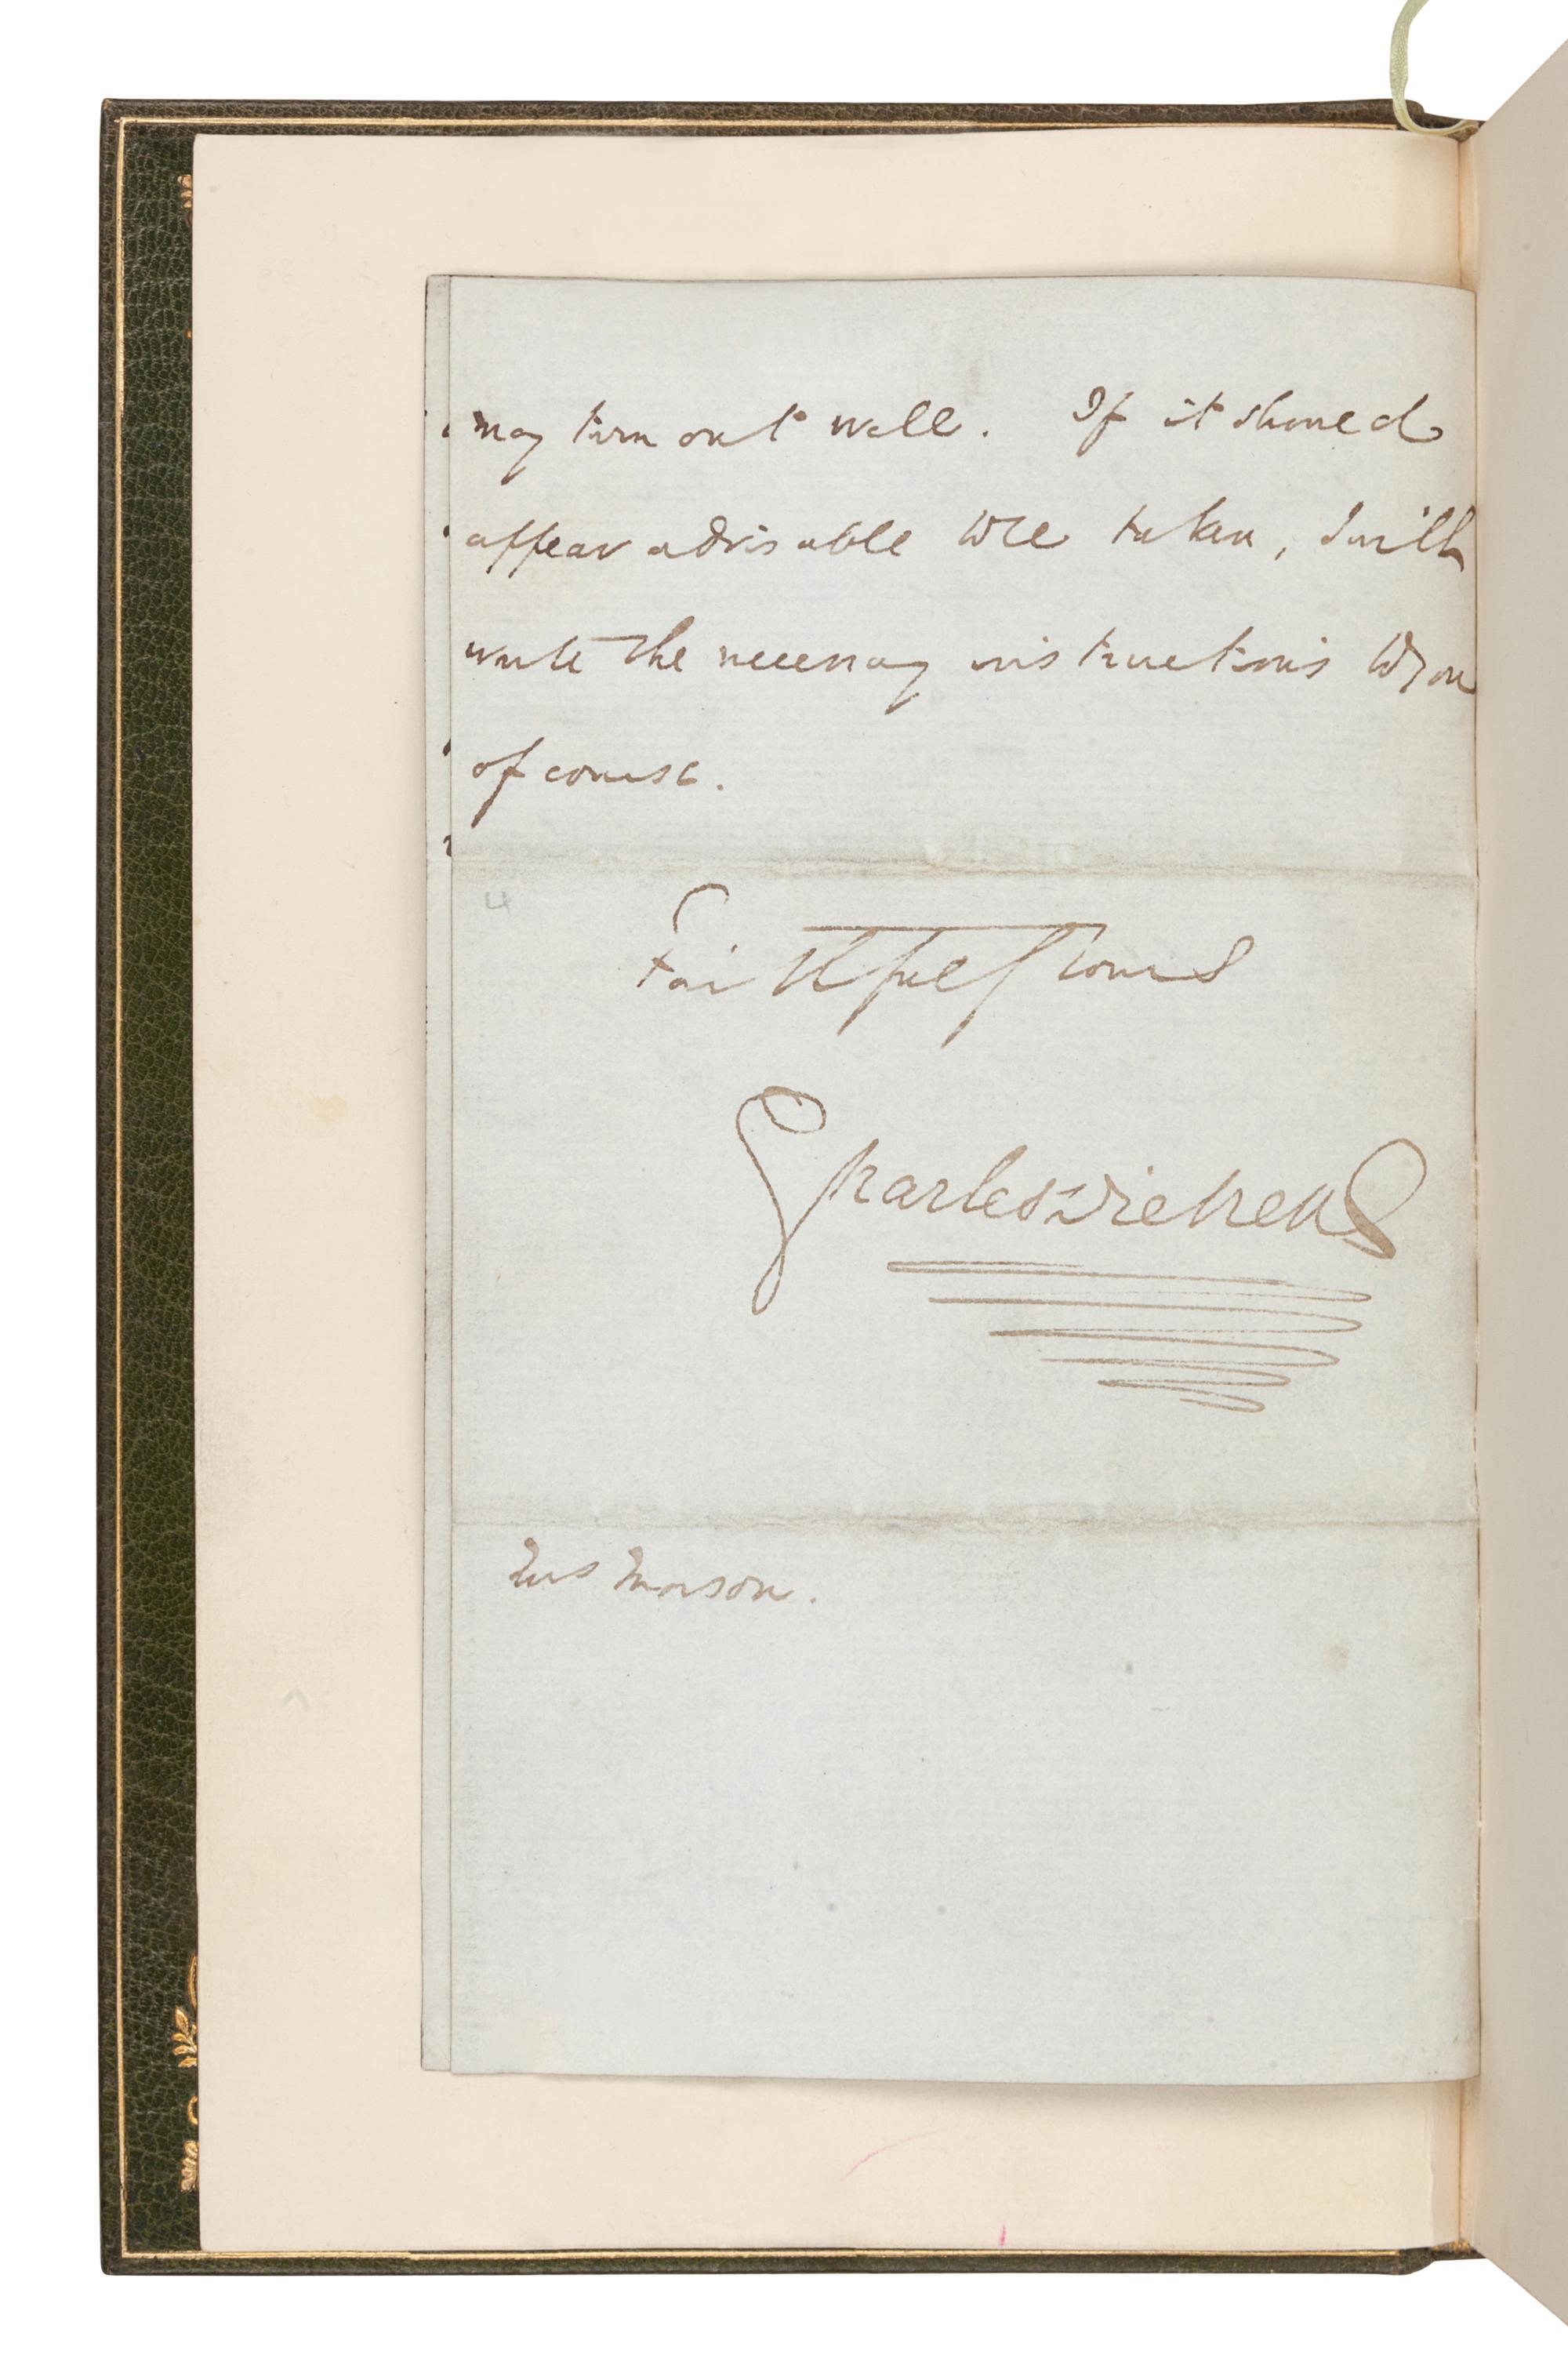 may turn out well. If it should
appear advisable to be taken, I will
write the necessary instructions to you
of course.
4
Faithfully Yours
Charles Dickens
Mrs Morson.